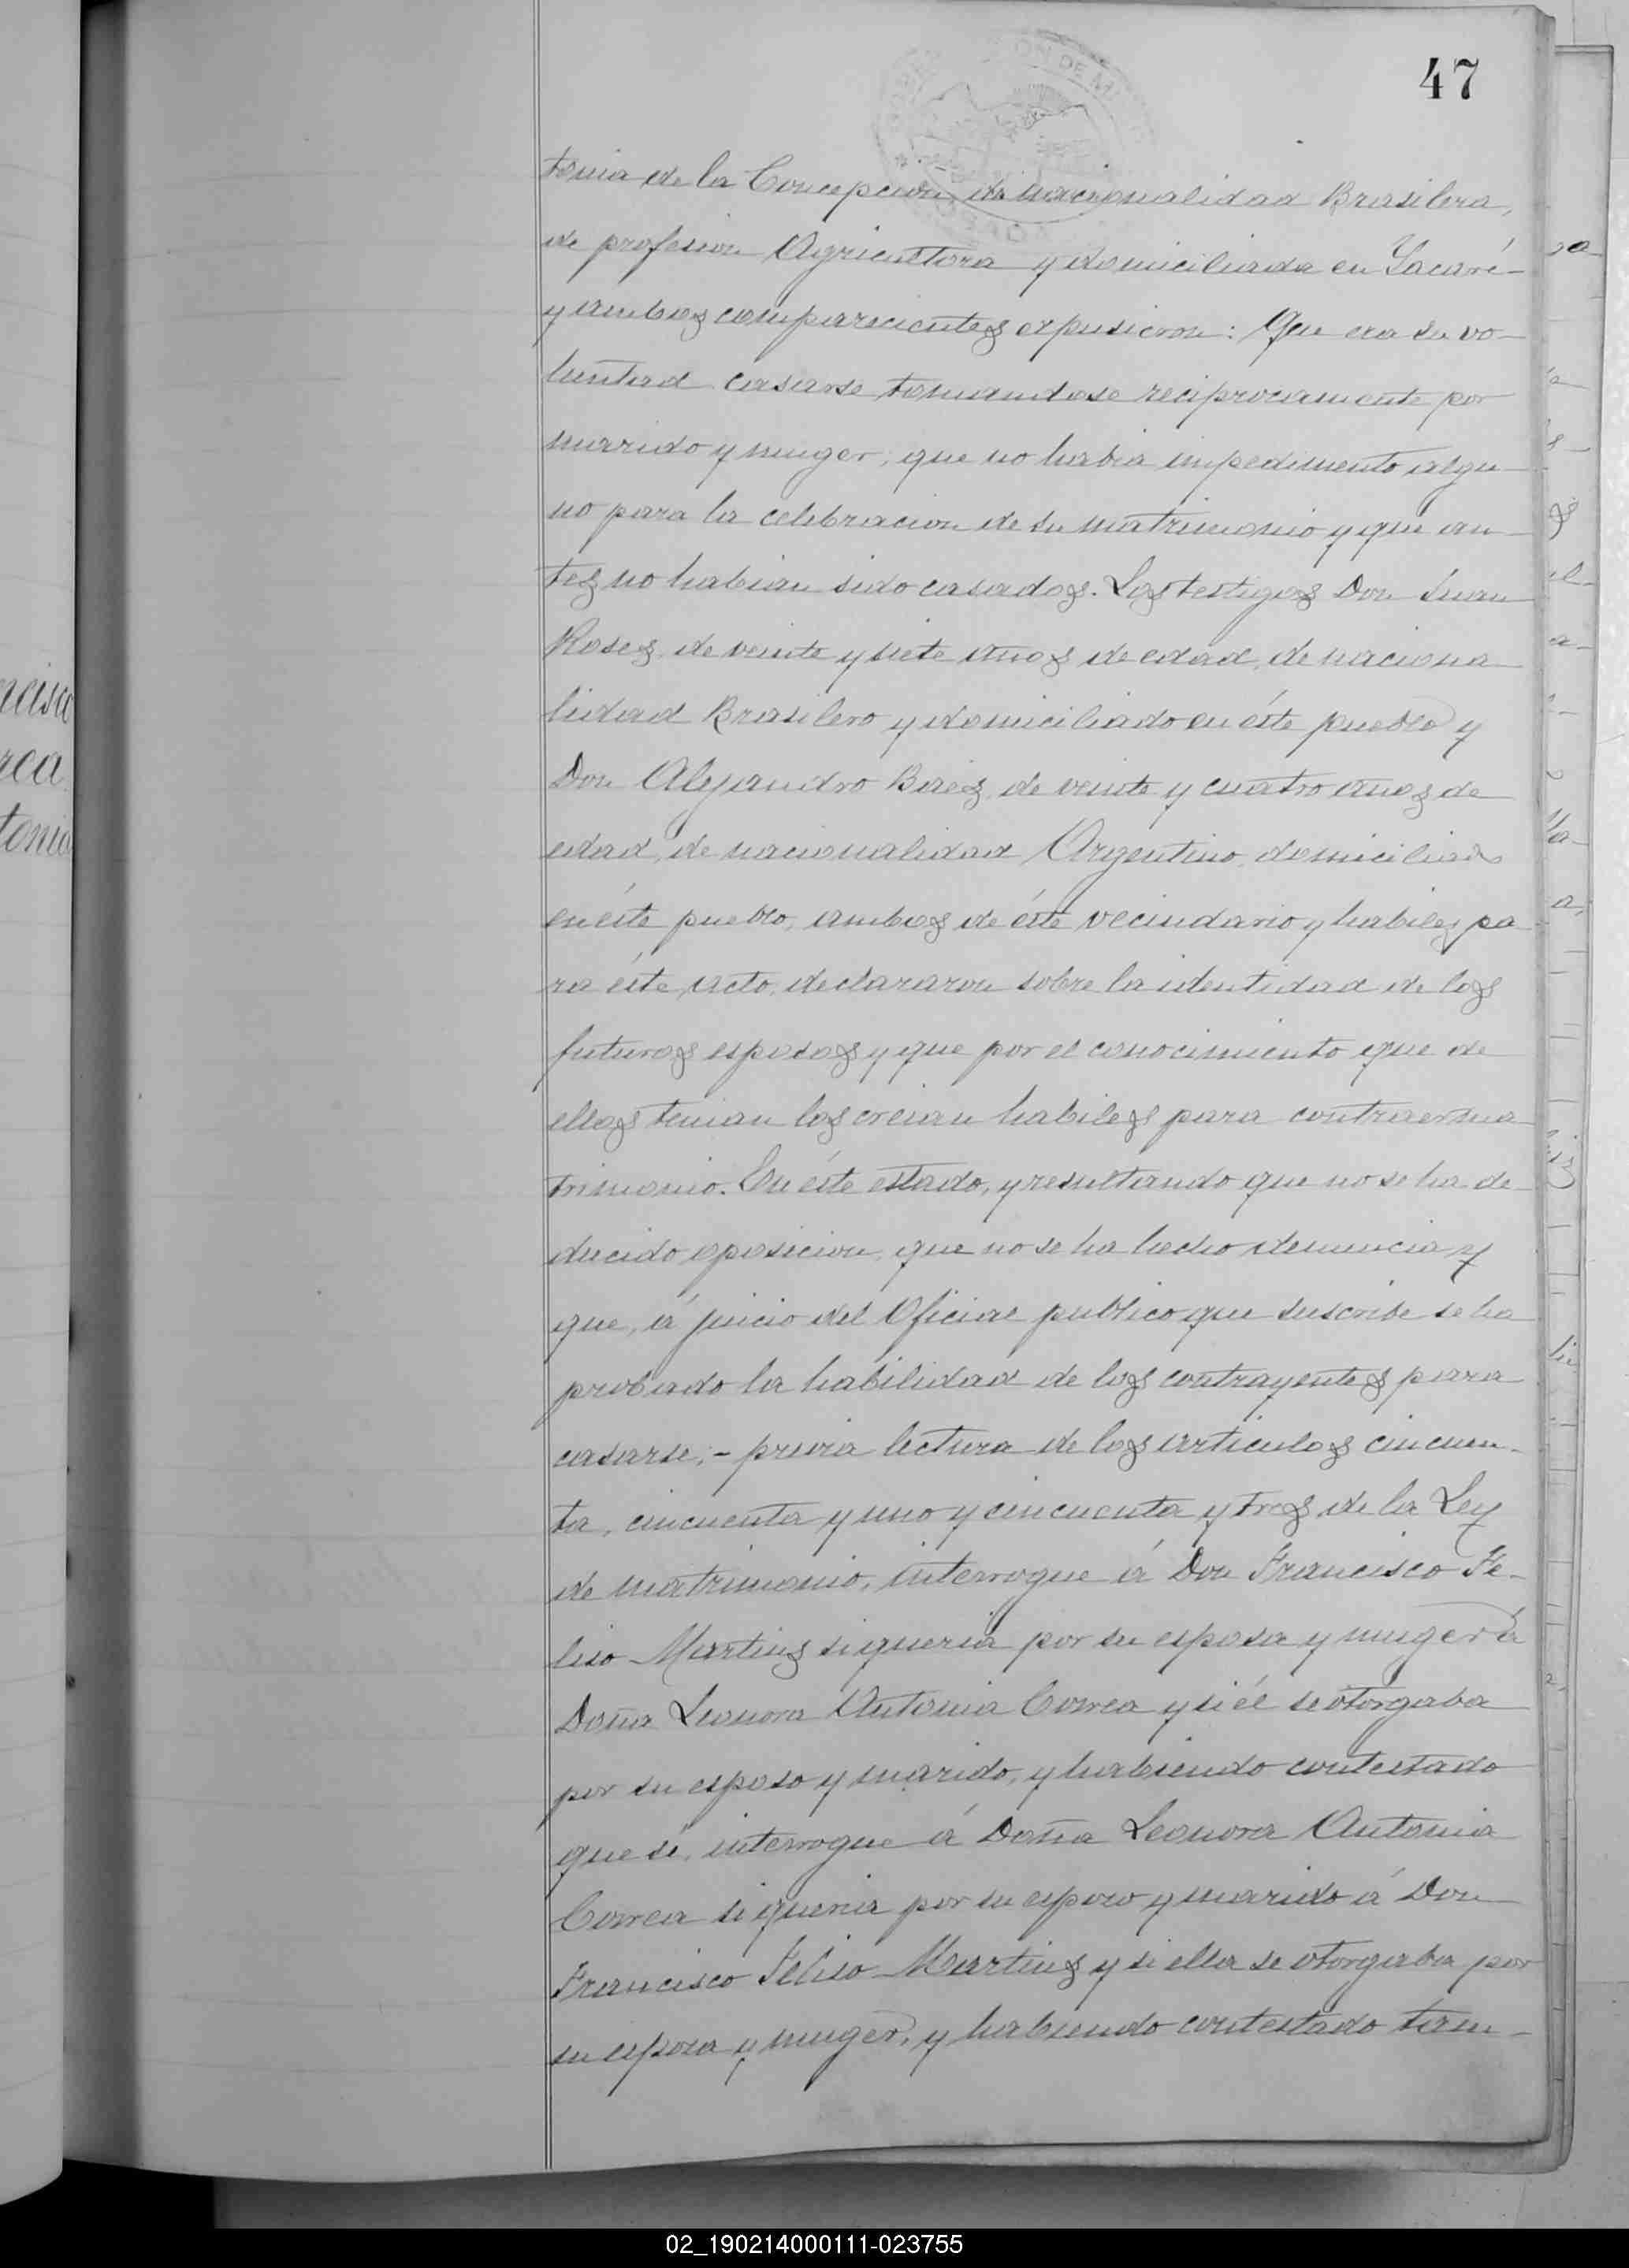 47
tonia de la Concepcion, de nacionalidad Brasilera,
de profesion Agricultora y domiciliada en Yacaré
y ambos comparecientes expusieron: Que era su vo-
luntad casarse tomandose reciprocamente por
marido y muger, que no habia impedimento algu-
no para la celebracion de su matrimonio y que an-
tes no habian sido casados. Los testigos Don Juan
Roses, de veinte y siete años de edad, de naciona
lidad Brasilero y domiciliado en éste pueblo y
Don Alejandro Baes, de veinte y cuatro años de
edad, de nacionalidad Argentino, domiciliado
en éste pueblo, ambos de éste vecindario y habiles pa-
ra éste acto, declararon sobre la identidad de los
futuros esposos y que por el conocimiento que de
ellos tenian los creian habiles para contraer ma
trimonio. En éste estado, y resultando que no se ha de
ducido oposicion, que no se ha hecho denuncia y
que, á juicio del Oficial publico que suscribe se ha
probado la habilidad de los contrayentes para
casarse; - previa lectura de los articulos cincuen-
ta, cincuenta y uno y cincuenta y tres de la Ley
de matrimonio, interrogue á Don Francisco Fe-
liso Martins si queria por su esposa y muger á
Doña Leonora Antonia Correa y si él se otorgaba
por su esposo y marido, y habiendo contestado
que si, interrogue á Doña Leonora Antonia
Correa si queria por su esposo y marido á Don
Francisco Feliso Martins y si ella se otorgaba por
su esposa y muger, y habiendo contestado tam-
02_190214000111-023755